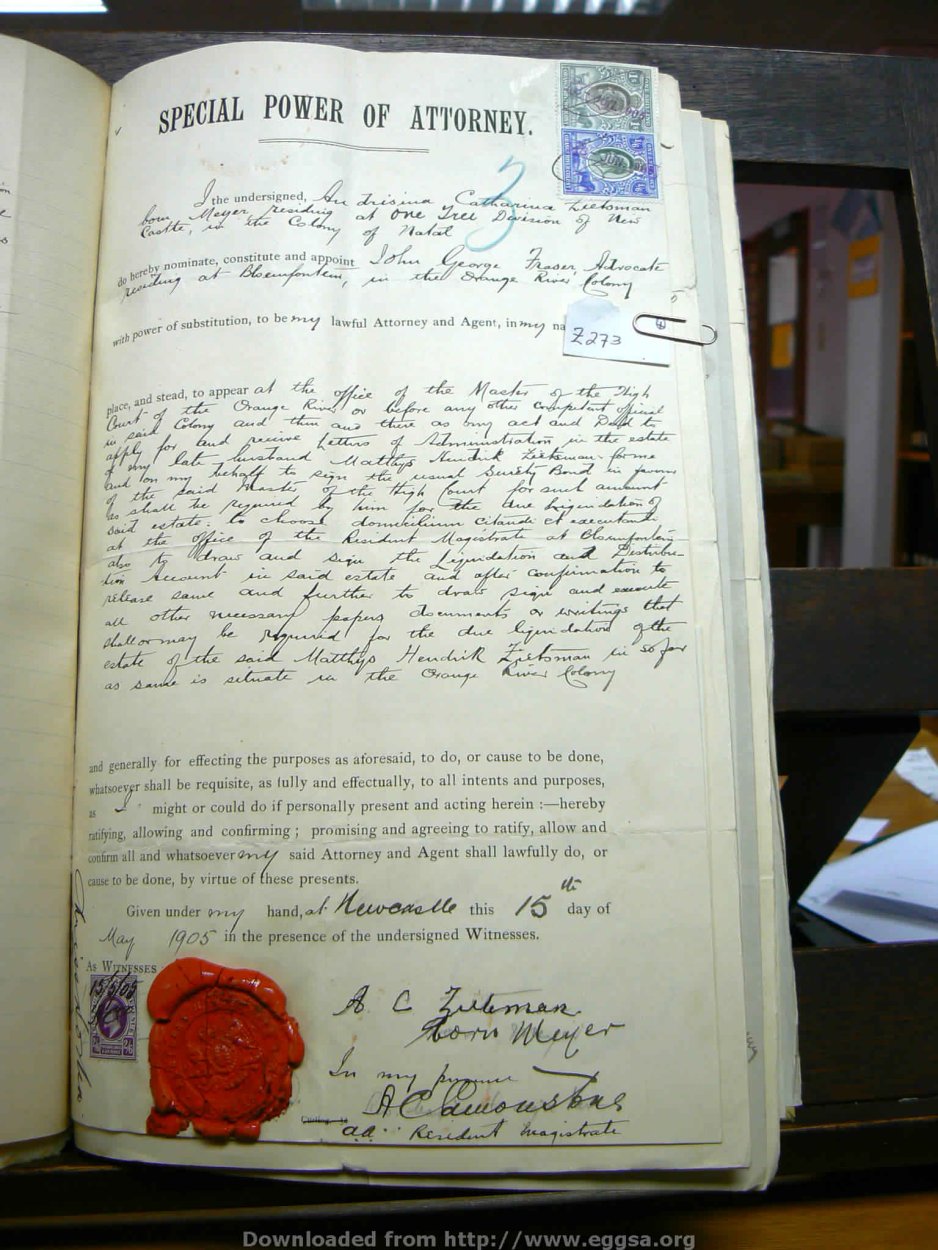 SPECIAL POWER OF ATTORNEY.
3
I the undersigned, Andrisina Catharina Zietsman
born Meyer residing at One Tree Division of New
Castle, in the Colony of Natal
do hereby nominate, constitute and appoint John George Fraser, Advocate
residing at Bloemfontein, in the Orange River Colony
with power of substitution, to be my lawful Attorney and Agent, in my na
Z273
place, and stead, to appear at the office of the Master of the High
Court of the Orange River or before any other competent official
in said Colony and then and there as my act and Deed to
apply for and receive Letters of Administration in the estate
of my late husband Matthys Hendrik Zietsman
and on my behalf to sign the usual Surety Bond in favour
of the said Master of the High Court for such amount
as shall be required by him for the due liquidation of
said estate. to choose domicilium citandi et executandi
at the office of the Resident Magistrate at Bloemfontein
also to draw and sign the Liquidation and Distribu-
tion Account in said estate and after confirmation to
release same and further to draw sign and execute
all other necessary papers documents or writings that
shall or may be required for the due liquidation of the
estate of the said Matthys Hendrik Zietsman in so far
as same is situate in the Orange River Colony
and generally for effecting the purposes as aforesaid, to do, or cause to be done,
whatsoever shall be requisite, as fully and effectually, to all intents and purposes,
as I might or could do if personally present and acting herein :—hereby
ratifying, allowing and confirming ; promising and agreeing to ratify, allow and
confirm all and whatsoever my said Attorney and Agent shall lawfully do, or
cause to be done, by virtue of these presents.
Given under my hand, at Newcastle this 15th day of
May 1905 in the presence of the undersigned Witnesses.
As Witnesses
15/5/05
A C Zietsman
born Meyer
In my presence
Resident Magistrate
Downloaded from http://www.eggsa.org